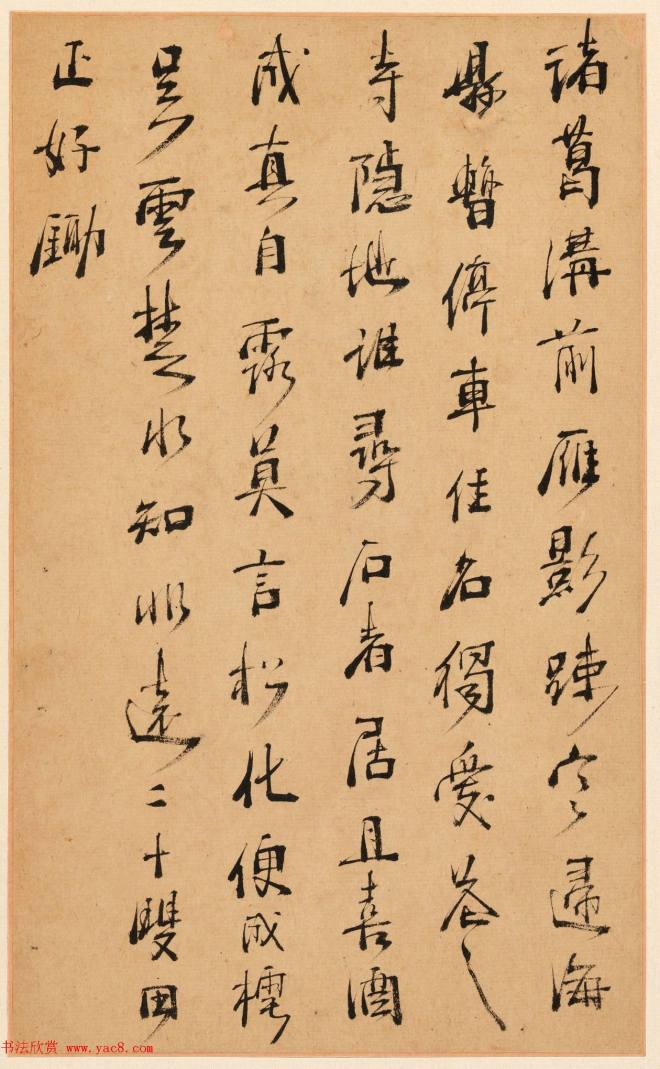 諸葛溝前雁影踈歸海
縣暫停車佳名獨愛花之
寺隱地誰尋石者居且喜酒
成真自露莫言松化便成樗
吳雲楚水知非遠二十雙田
正好鋤
书法欣赏 www.yac8.com